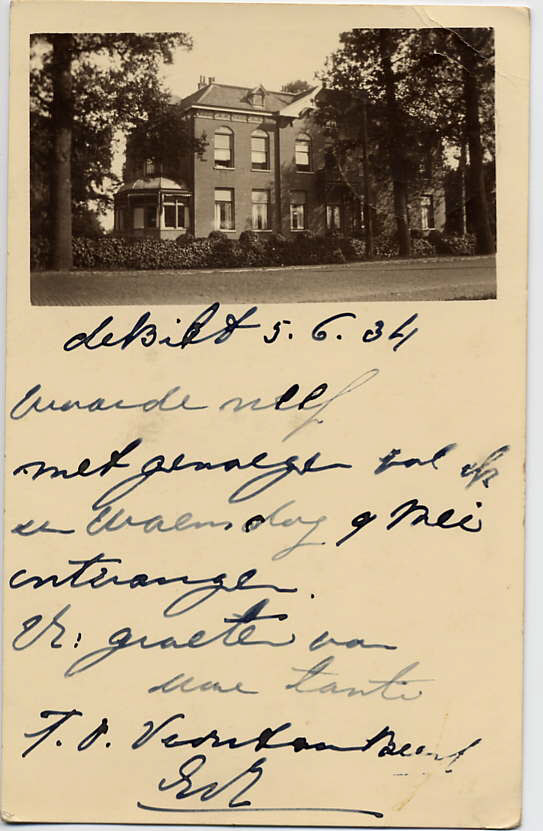 de Bilt 5. 6. 34
Waarde neef
met genoegen zal ik
u Waensdag 9 Mei
ontvangen.
Vr: groeten van
uwe tante